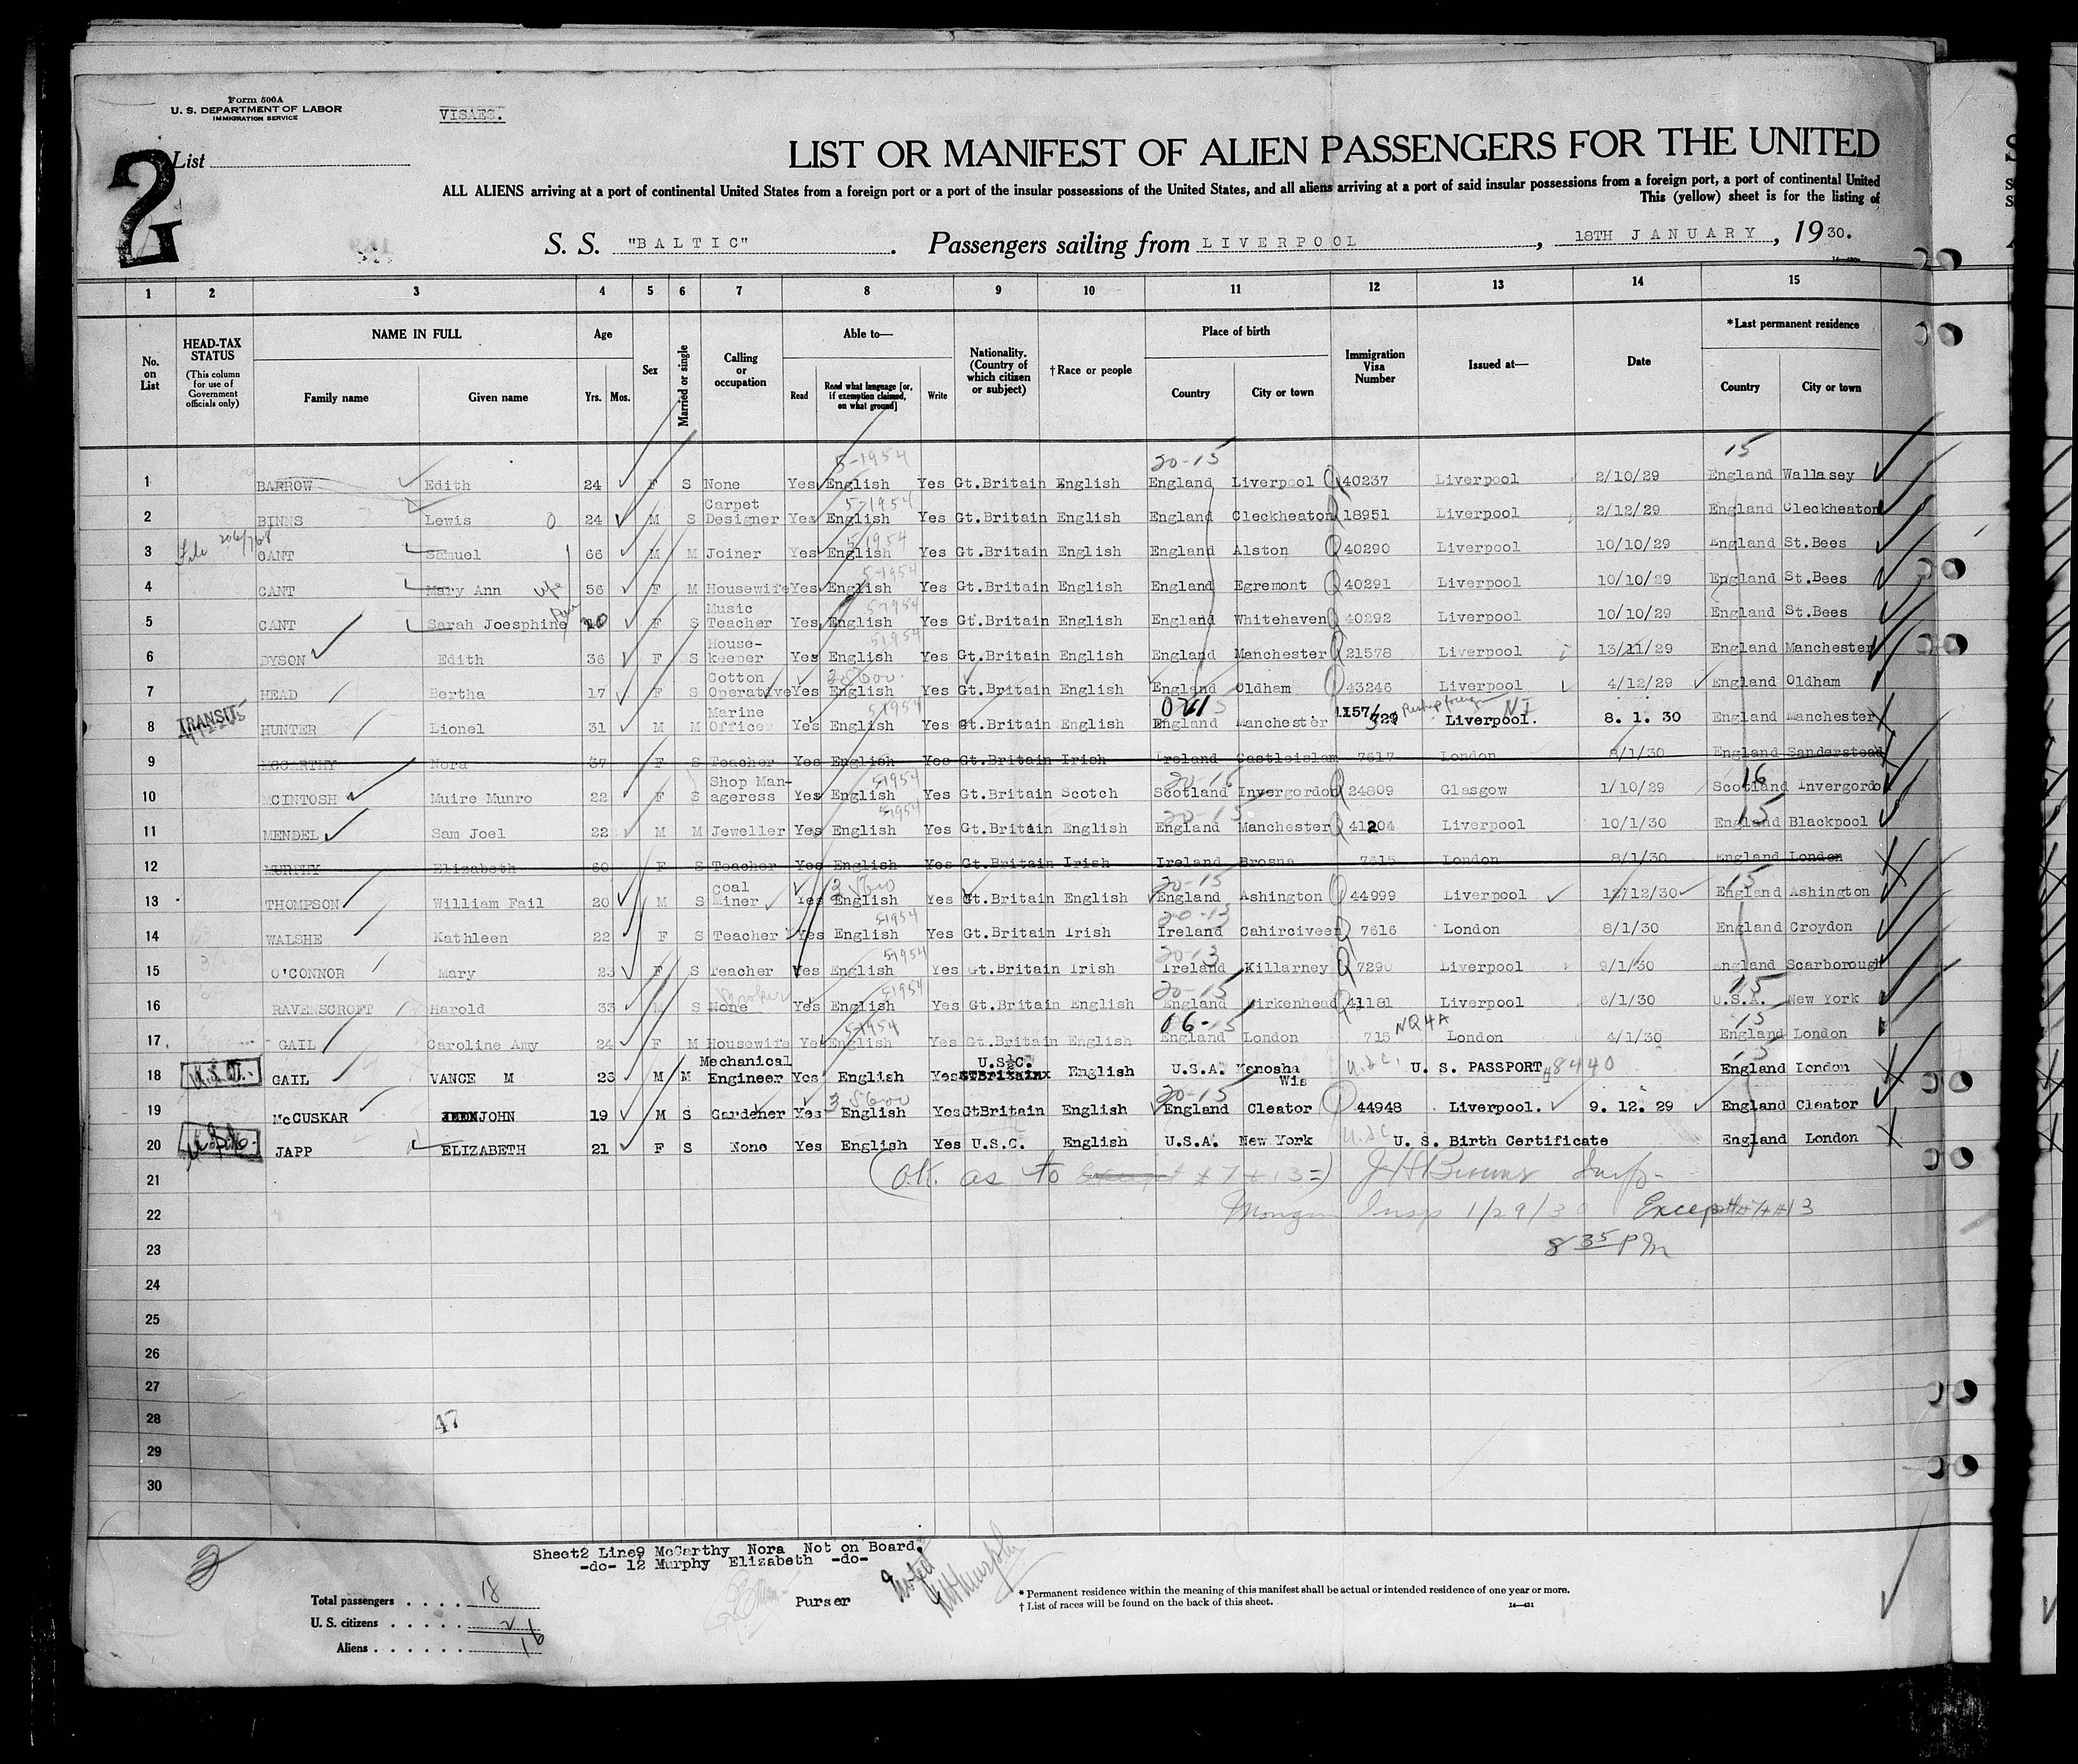 Form 500A
U. S. DEPARTMENT OF LABOR
IMMIGRATION SERVICE
VISAES.
2
List
LIST OR MANIFEST OF ALIEN PASSENGERS FOR THE UNITED
ALL ALIENS arriving at a port of continental United States from a foreign port or a port of the insular possessions of the United States, and all aliens arriving at a port of said insular possessions from a foreign port, a port of continental United
This (yellow) sheet is for the listing of
S. S. "BALTIC". Passengers sailing from LIVERPOOL, 18TH JANUARY, 1930.
1 2 3 4 5 6 7 8 9 10 11 12 13 14 15
No. on List
HEAD-TAX STATUS (This column for use of Government officials only)
NAME IN FULL Family name Given name
Age Yrs. Mos.
Sex
Married or single
Calling or occupation
Able to— Read Read what language [or, if exemption claimed, on what ground] Write
Nationality. (Country of which citizen or subject)
†Race or people
Place of birth Country City or town
Immigration Visa Number
Issued at—
Date
*Last permanent residence Country City or town
5-1954 20-15 15
1 BARROW Edith 24 F S None Yes English Yes Gt.Britain English England Liverpool 40237 Liverpool 2/10/29 England Wallasey
5-1954
2 BINNS Lewis 24 M S Carpet Designer Yes English Yes Gt.Britain English England Cleckheaton 18951 Liverpool 2/12/29 England Cleckheaton
File 5-1954
3 CANT Samuel 66 M M Joiner Yes English Yes Gt.Britain English England Alston 40290 Liverpool 10/10/29 England St.Bees
5-1954
4 CANT Mary Ann wife 56 F M Housewife Yes English Yes Gt.Britain English England Egremont 40291 Liverpool 10/10/29 England St.Bees
5-1954
5 CANT Sarah Joesphine F S Music Teacher Yes English Yes Gt.Britain English England Whitehaven 40292 Liverpool 10/10/29 England St.Bees
5-1954
6 DYSON Edith 36 F S House-keeper Yes English Yes Gt.Britain English England Manchester 21578 Liverpool 13/11/29 England Manchester
7 HEAD Bertha 17 F S Cotton Operative Yes English Yes Gt.Britain English England Oldham 43246 Liverpool 4/12/29 England Oldham
TRANSIT 5-1954
8 HUNTER Lionel 31 M M Marine Officer Yes English Yes Gt.Britain English England Manchester 1157/ Liverpool. 8. 1. 30 England Manchester
9 MCCARTHY Nora 37 F S Teacher Yes English Yes Gt.Britain Irish Ireland Castleislam 7617 London 8/1/30 England Sanderstead
5-1954 20-16 16
10 MCINTOSH Muire Munro 22 F S Shop Man-ageress Yes English Yes Gt.Britain Scotch Scotland Invergordon 24809 Glasgow 1/10/29 Scotland Invergordo
5-1954 20-15 15
11 MENDEL Sam Joel 22 M M Jeweller Yes English Yes Gt.Britain English England Manchester 41204 Liverpool 10/1/30 England Blackpool
12 MURPHY Elizabeth 60 F S Teacher Yes English Yes Gt.Britain Irish Ireland Brosna 7615 London 8/1/30 England London
20-15 15
13 THOMPSON William Fail 20 M S Coal Miner Yes English Yes Gt.Britain English England Ashington 44999 Liverpool 12/12/30 England Ashington
5-1954 20-13
14 WALSHE Kathleen 22 F S Teacher Yes English Yes Gt.Britain Irish Ireland Cahirciveen 7616 London 8/1/30 England Croydon
5-1954 20-13
15 O'CONNOR Mary 23 F S Teacher Yes English Yes Gt.Britain Irish Ireland Killarney 7290 Liverpool 9/1/30 England Scarborough
Broker 5-1954 20-15 15
16 RAVENSCROFT Harold 33 M S None Yes English Yes Gt.Britain English England Birkenhead 41181 Liverpool 6/1/30 U.S.A. New York
5-1954 06-15 NQ4A 15
17 GAIL Caroline Amy 24 F M Housewife Yes English Yes Gt.Britain English England London 715 London 4/1/30 England London
18 GAIL VANCE M 26 M M Mechanical Engineer Yes English Yes U.S.C. English U.S.A. Kenosha Wis U.S.C. U. S. PASSPORT 8440 England London
20-15
19 McCUSKAR JOHN 19 M S Gardener Yes English Yes GtBritain English England Cleator 44948 Liverpool. 9. 12. 29 England Cleator
20 JAPP ELIZABETH 21 F S None Yes English Yes U.S.C. English U.S.A. New York U.S.C. U. S. Birth Certificate England London
21 (O.K. as to # 7 + 13) Insp-
22 Insp 1/29/30 Except # 7 + # 13
23 8 35 PM
24
25
26
27
28 47
29
30
2
Sheet2 Line9 McCarthy Nora Not on Board.
-do- 12 Murphy Elizabeth -do-
Purser
Noted
Total passengers . . . . 18
U. S. citizens . . . . . 2
Aliens . . . . . . 16
* Permanent residence within the meaning of this manifest shall be actual or intended residence of one year or more.
† List of races will be found on the back of this sheet.
14—431